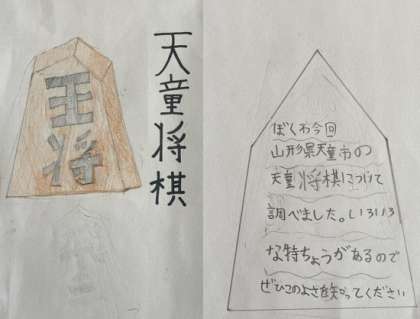 王将
天童将棋
ぼくわ今回
山形県天童市の
天童将棋について
調べました。いろいろ
な特ちょうがあるので
ぜひこのよさを知ってください